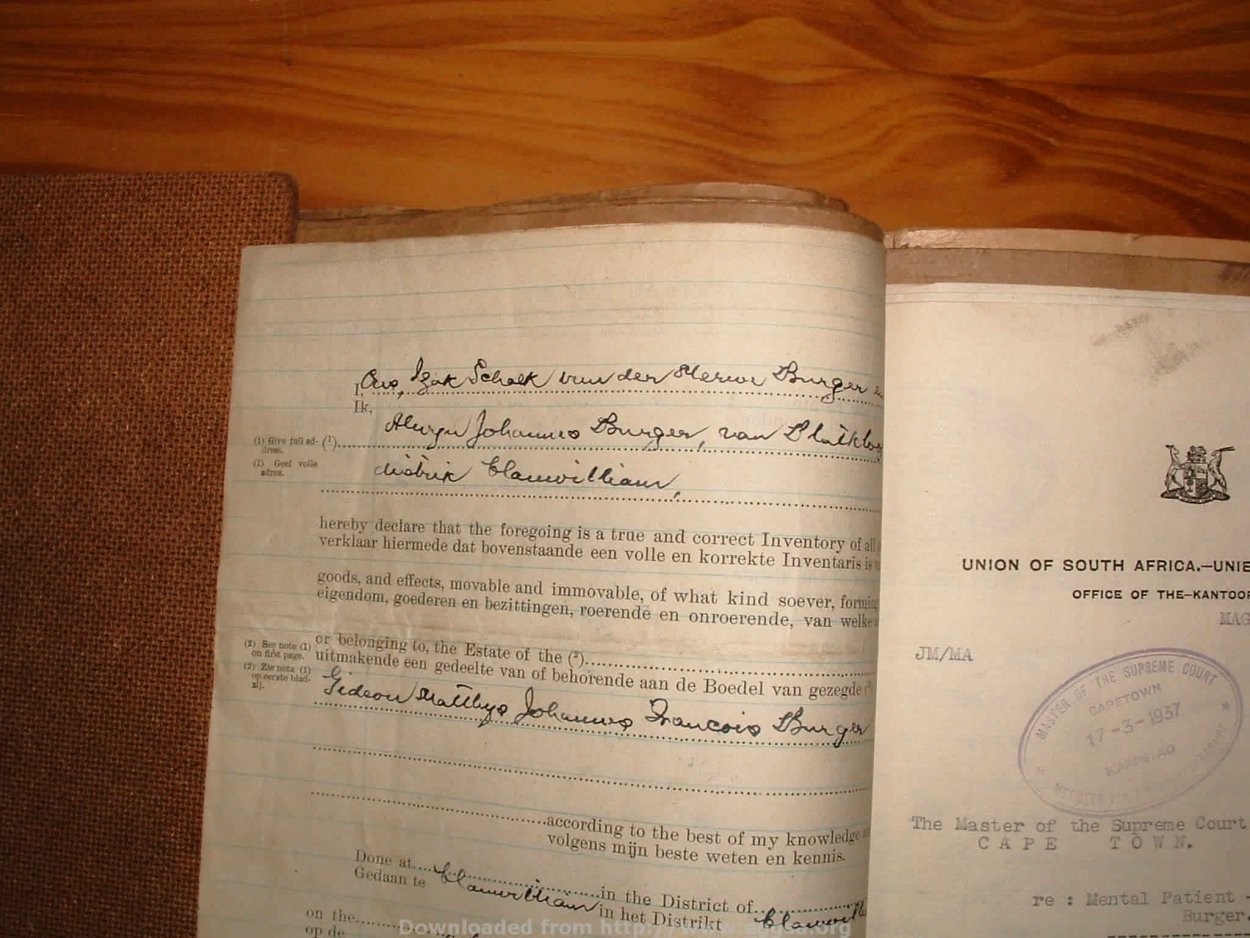 I, Ons, Izak Schalk van der Merwe Burger
Ik,
Alwyn Johannes Burger, van
(1) Give full ad-
dress.
(1)
(1) Geef volle
adres.
distrik Clanwilliam,
hereby declare that the foregoing is a true and correct Inventory of all
verklaar hiermede dat bovenstaande een volle en korrekte Inventaris is
goods, and effects, movable and immovable, of what kind soever, forming
eigendom, goederen en bezittingen, roerende en onroerende, van welke
(2) See note (1)
on first page.
or belonging to, the Estate of the (2)
(2) Zie nota (1)
op eerste blad-
zij.
uitmakende een gedeelte van of behorende aan de Boedel van gezegde
Gideon Matthys Johannes Francois Burger
according to the best of my knowledge
volgens mijn beste weten en kennis.
Done at Clanwilliam in the District of
Gedaan te in het Distrikt
on the
op de
UNION OF SOUTH AFRICA.—UNIE
OFFICE OF THE—KANTOOR
MAG
JM/MA
MASTER OF THE SUPREME COURT
CAPETOWN
17-3-1937
KAAPSTAD
The Master of the Supreme Court
CAPE TOWN.
re : Mental Patient -
Burger.
Downloaded from